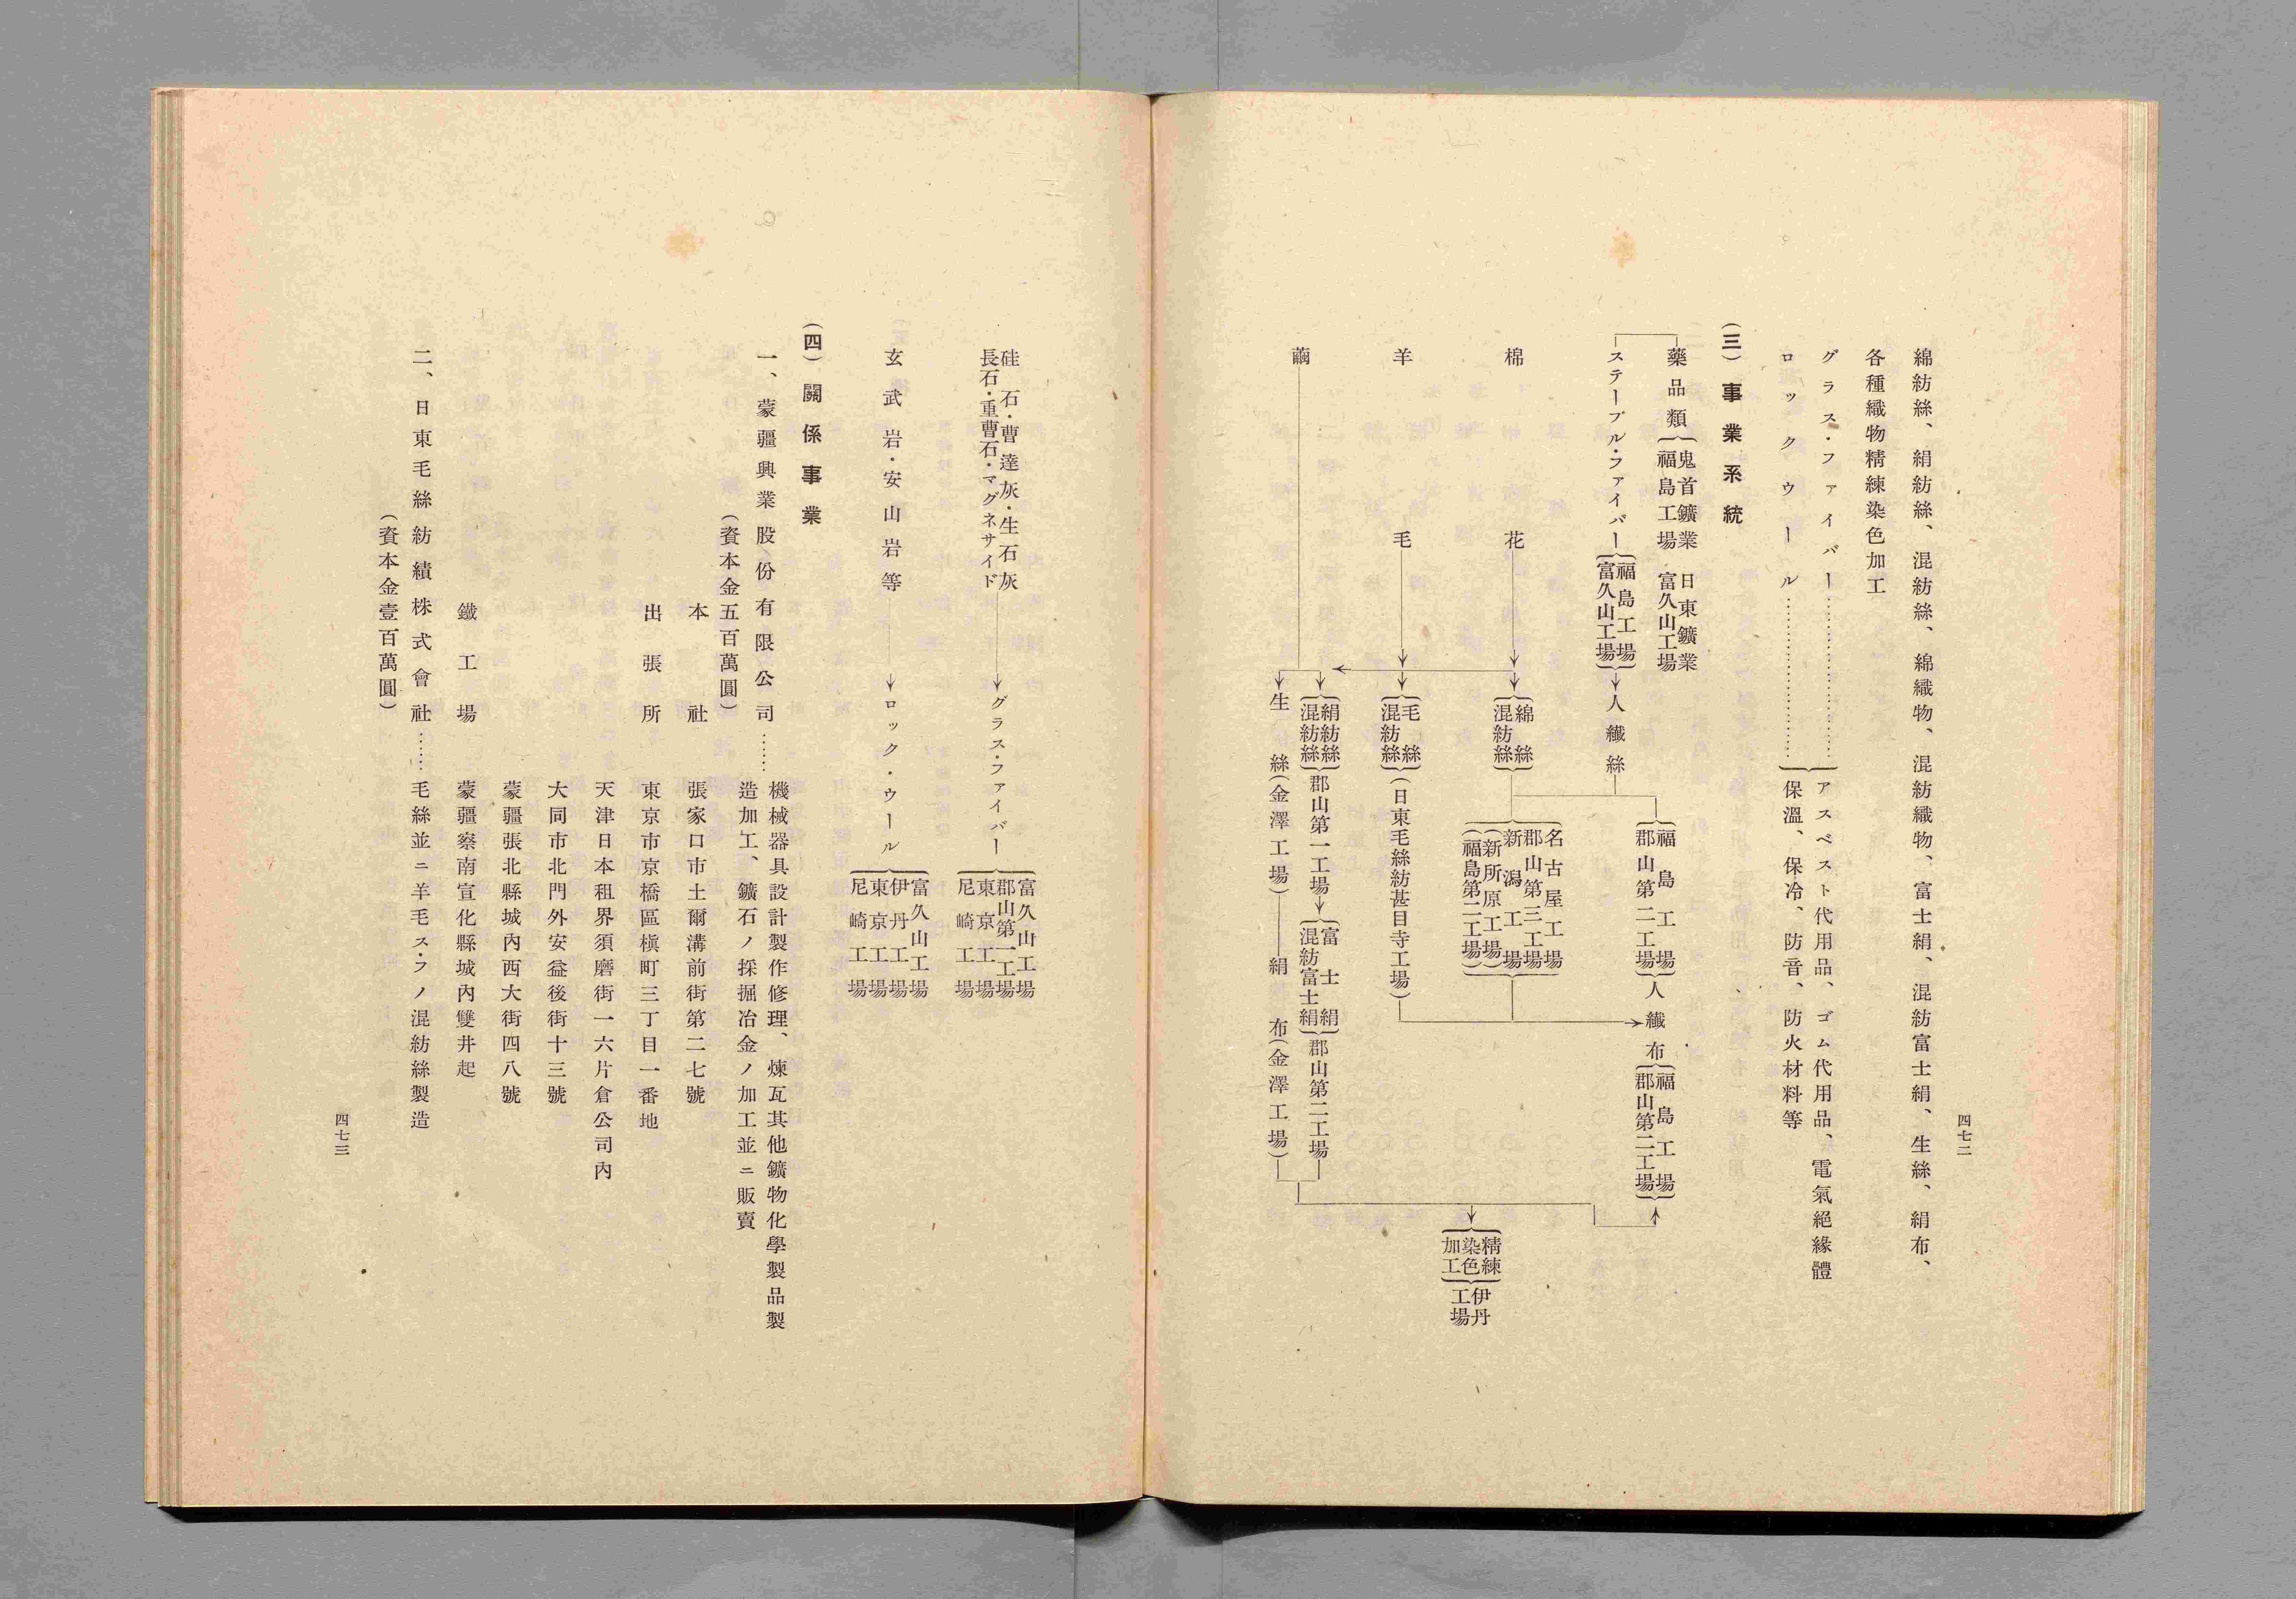 綿紡絲、絹紡絲、混紡絲、綿織物、混紡織物、富士絹、混紡富士絹、生絲、絹布、
各種織物精練染色加工
グラス・ファイバー……………………
ロックウール……………………
アスベスト代用品、ゴム代用品、電氣絕緣體
保溫、保冷、防音、防火材料等
(三)事業系統
藥品類
鬼首鑛業 日東鑛業
福島工場 富久山工場
ステープル・ファイバー
福島工場
富久山工場
人纖絲
福島工場
郡山第二工場
人纖布
福島工場
郡山第二工場
棉花
綿絲
混紡絲
名古屋工場
郡山第三工場
新潟工場
(新所原工場)
(福島第二工場)
羊毛
毛絲
混紡絲
(日東毛絲紡甚目寺工場)
繭
絹紡絲
混紡絲
郡山第一工場
富士絹
混紡富士絹
郡山第二工場
生絲(金澤工場)
絹布(金澤工場)
精練
染色
加工
伊丹
工場
四七二
硅石・曹達灰・生石灰
長石・重曹石・マグネサイド
グラス・ファイバー
富久山工場
郡山第一工場
東京工場
尼崎工場
玄武岩・安山岩等
ロック・ウール
富久山工場
伊丹工場
東京工場
尼崎工場
(四)關係事業
一、蒙疆興業股份有限公司……
機械器具設計製作修理、煉瓦其他鑛物化學製品製
造加工、鑛石ノ採掘冶金ノ加工並ニ販賣
(資本金五百萬圓)
本社 張家口市土爾溝前街第二七號
出張所 東京市京橋區槇町三丁目一番地
天津日本租界須磨街一六片倉公司內
大同市北門外安益後街十三號
蒙疆張北縣城內西大街四八號
鐵工場 蒙疆察南宣化縣城內雙井起
二、日東毛絲紡績株式會社……毛絲並ニ羊毛ス・フノ混紡絲製造
(資本金壹百萬圓)
四七三